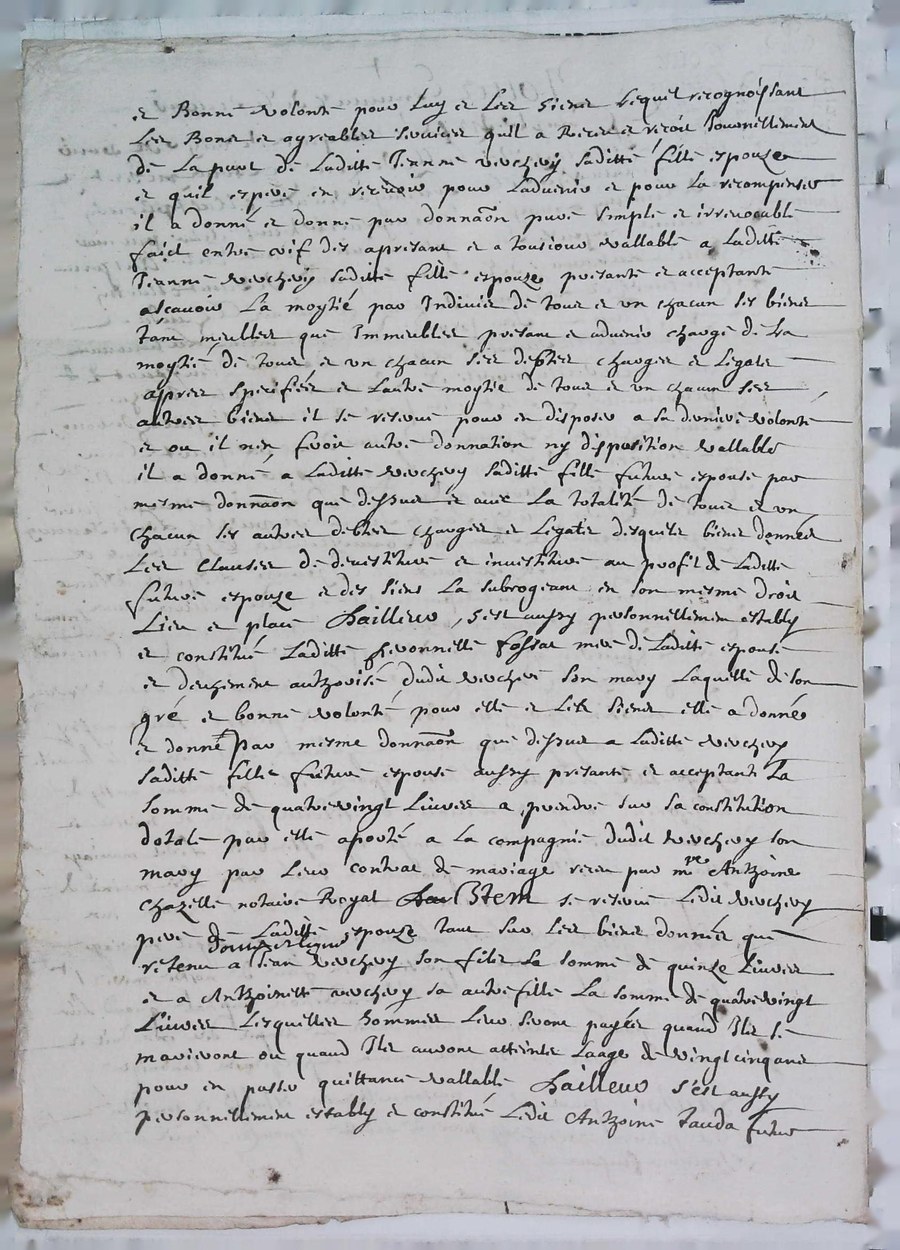 et Bonne volonte pour luy et les siens lequel recognoissant
les Bons et agreables services quil a Receu et recoit Journellement
de La part de Laditte Jeanne verchery saditte fille espouze
et quil espere en recevoir pour Ladvenir et pour La recompenser
il a donné et donne par donnaôn pure simple et irrevocable
faict entre vif des apresant et a tousiour vallable a Laditte
Jeanne verchery saditte fille espouze presante et acceptante
ascavoir La moytié par Indivis de tous et un chacun ses biens
tant meubles que Immeubles presant et advenir charge de La
moytié de tous et un chacun ses debtes charges et Legats
apres specifiés et Lautre moytie de tous et un chacun ses
autres biens il se reserve pour en disposer a sa derniere volonte
et ou il nen feroit autre donnation ny disposition vallable
il a donné a Laditte verchery saditte fille future espouse par
mesme donnaôn que dessus et avec La totalité de tous et un
chacun ses autres debtes charges et Legats desquels biens donnés
Les clauses de devestiture et investiture au profit de Laditte
future espouze et des siens La subrogeant en son mesme droit
Lieu et place Dailleur, s'est aussy personnellement estably
et constitué Laditte fossat mere de Laditte espouse
et deuhement authorisé dudit vercher son mary Laquelle de son
gré et bonne volonté pour elle et Les siens elle a donné
et donne par mesme donnaôn que dessus a Laditte verchery
saditte fille future espouse aussy presante et acceptante La
somme de quatrevingt Livres a prendre sur sa constitution
dotale par elle aporté a la compagnie dudit verchery son
mary par Leur contrat de mariage receu par mre Anthoine
chazelle notaire Royal Item se reserve Ledit verchery
pere de Laditte espouze tant sur Les biens donnés que
retenu a Jean verchery son fils La somme de quinze Livres
et a Anthoinette verchery sa autre fille La somme de quatrevingt
Livres Lesquelles sommes Leur seront payées quand Ils se
marieront ou quand Ils auront atteints Laage de vingt cinq ans
pour en passer quittance vallable Dailleur s'est aussy
personnellement estably et constitué Ledit Anthoine futur